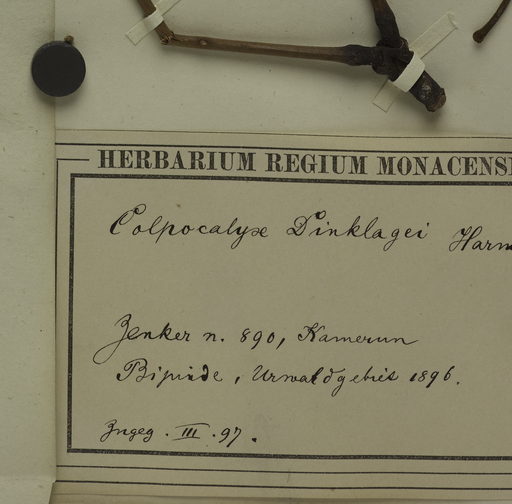 HERBARIUM REGIUM MONACENSE
Colpocalyx Dinklagei Harm
Zenker n. 890, Kamerun
Bipinde, Urwaldgebiet 1896.
Ingeg. III. 97.